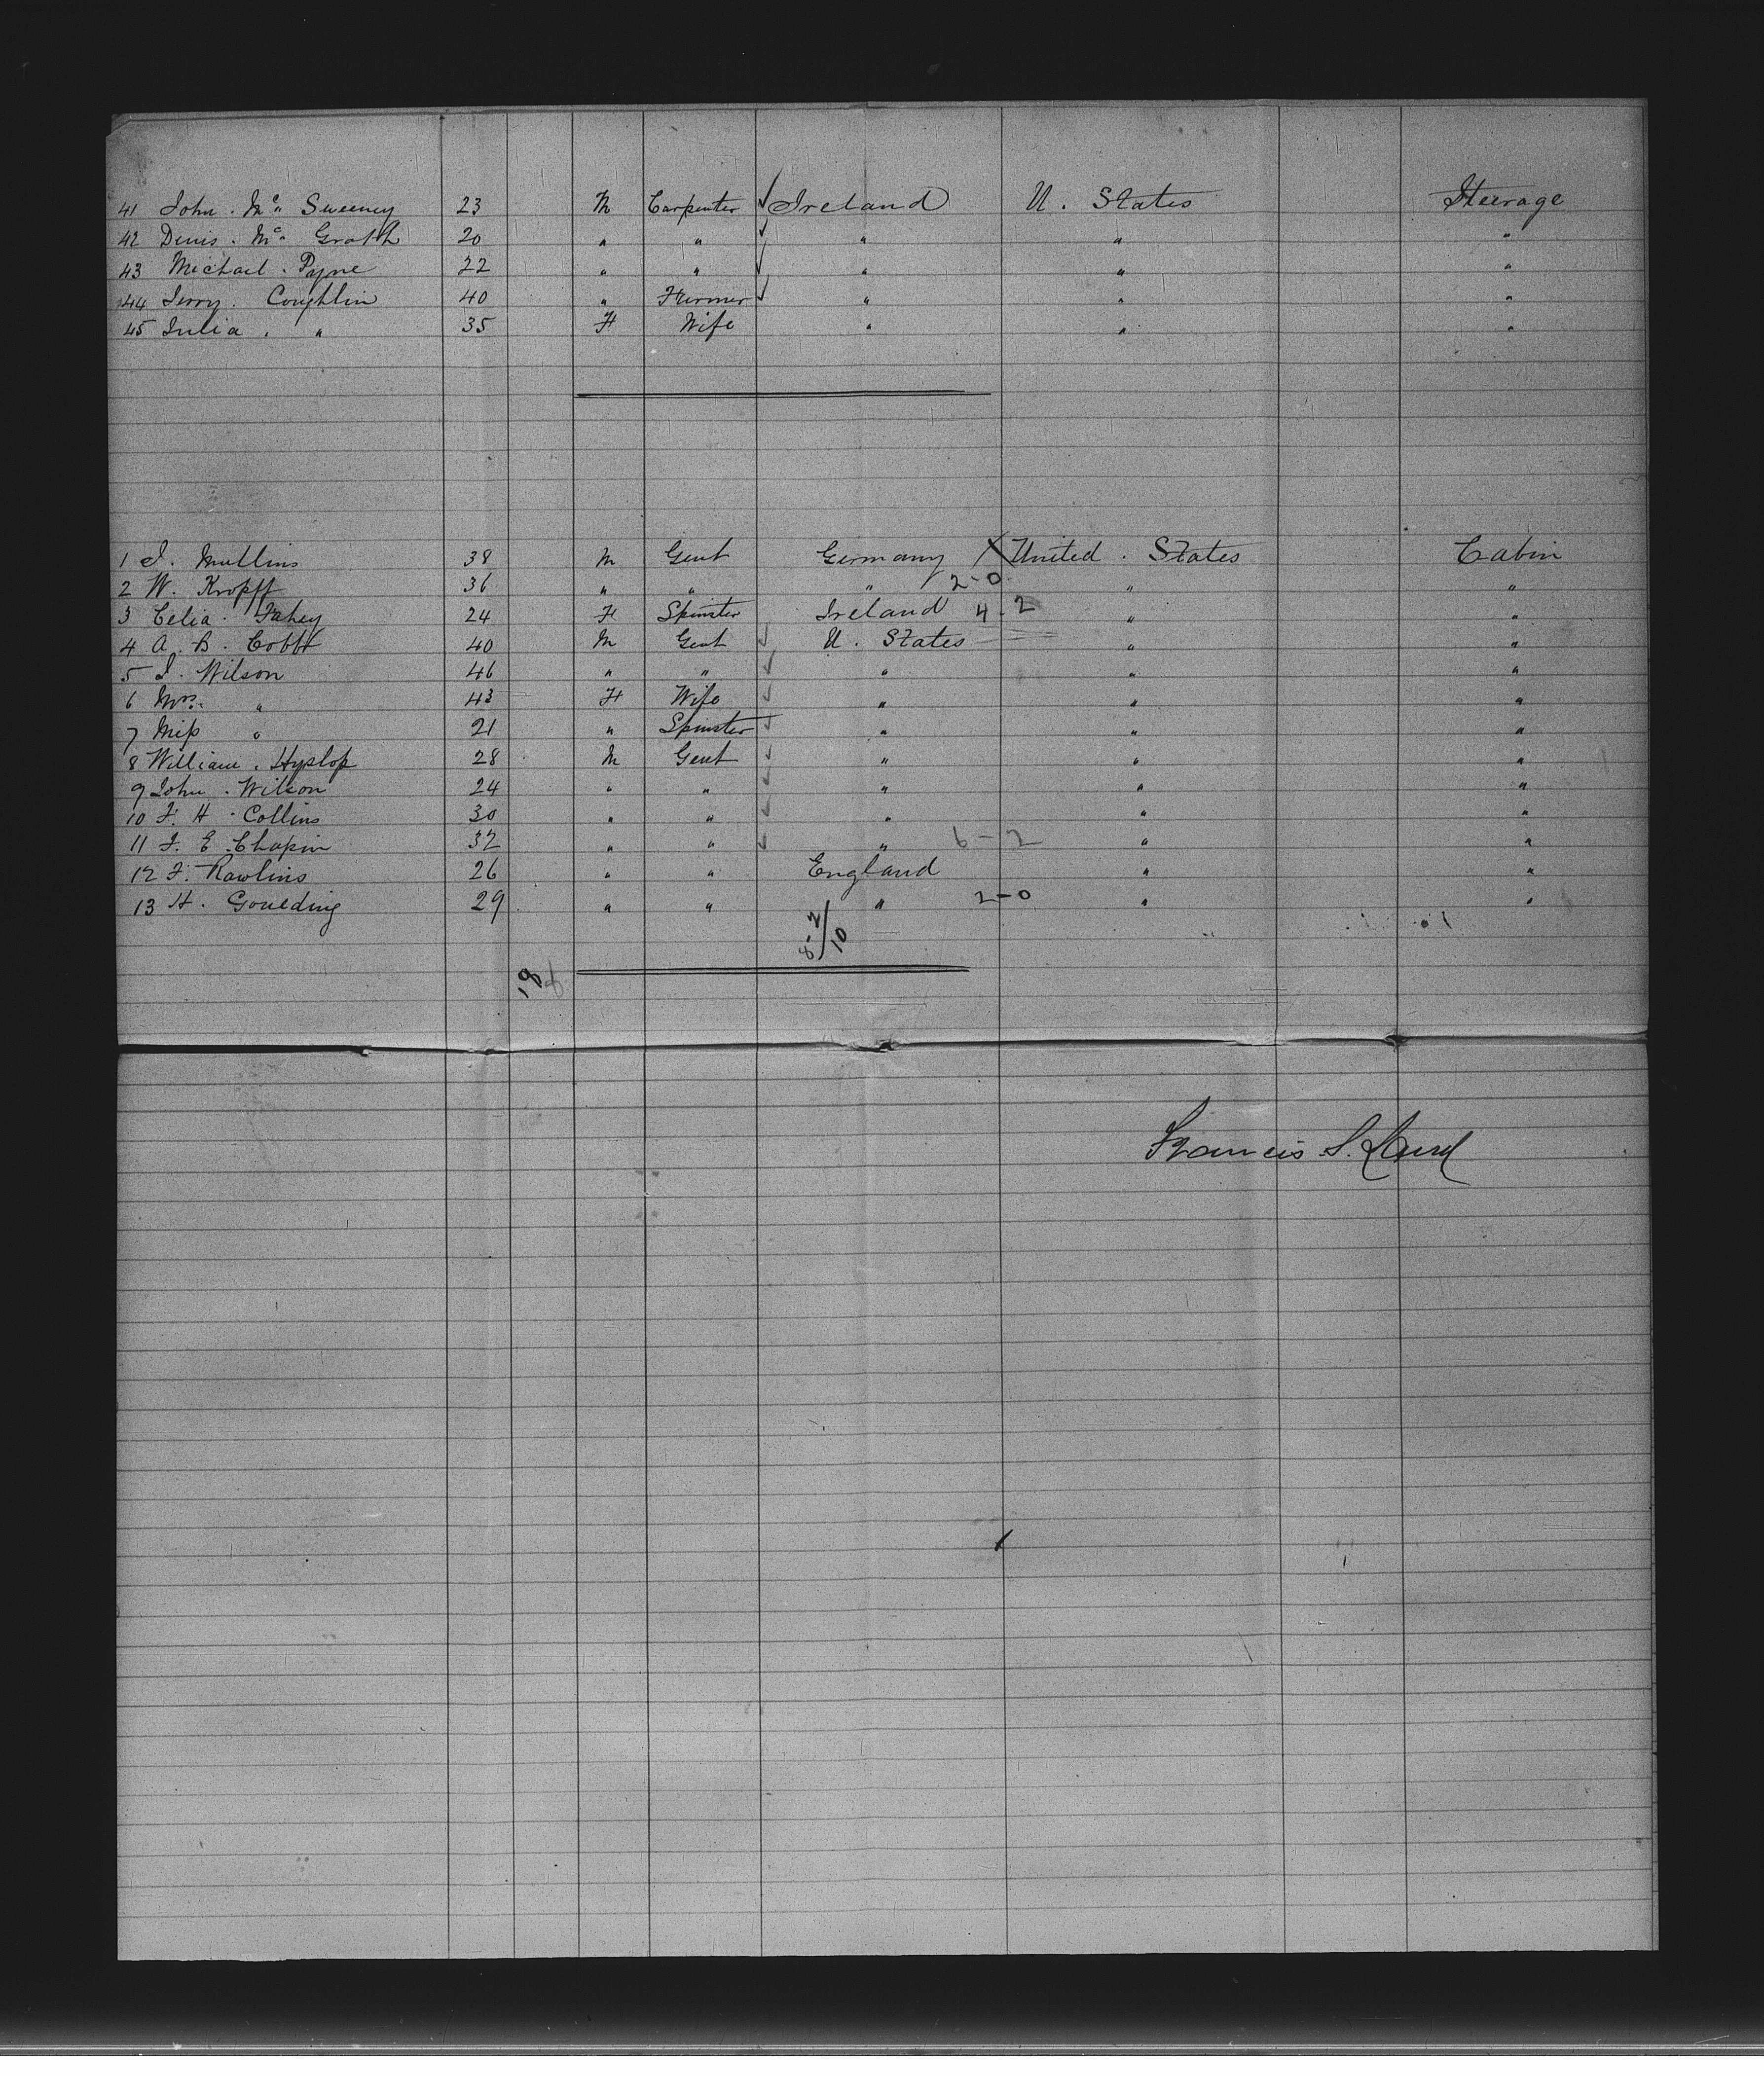 41 John . Mc. Sweeney 23 M Carpenter ✓ Ireland U. States Steerage
42 Denis . Mc. Grath 20 " " ✓ " " "
43 Michael . Pyne 22 " " ✓ " " "
44 Jerry . Coughlin 40 " Farmer ✓ " " "
45 Julia . " 35 F Wife " " "
1 J. Mullins 38 M Gent Germany X United . States Cabin
2 W. Kropff 36 " " " 2-0 " "
3 Celia . Fahey 24 F Spinster Ireland 4-2 " "
4 A. B. Cobb 40 M Gent ✓ U. States " "
5 J. Wilson 46 " " ✓ " " "
6 Mrs. " 43 F Wife ✓ " " "
7 Miss " 21 " Spinster ✓ " " "
8 William . Hyslop 28 M Gent ✓ " " "
9 John . Wilson 24 " " ✓ " " "
10 F. H. Collins 30 " " ✓ " " "
11 F. E. Chapin 32 " " ✓ " 6-2 " "
12 F. Rawlins 26 " " England " "
13 H. Goulding 29 " " " 2-0 " "
8-2/10
Francis S. Land